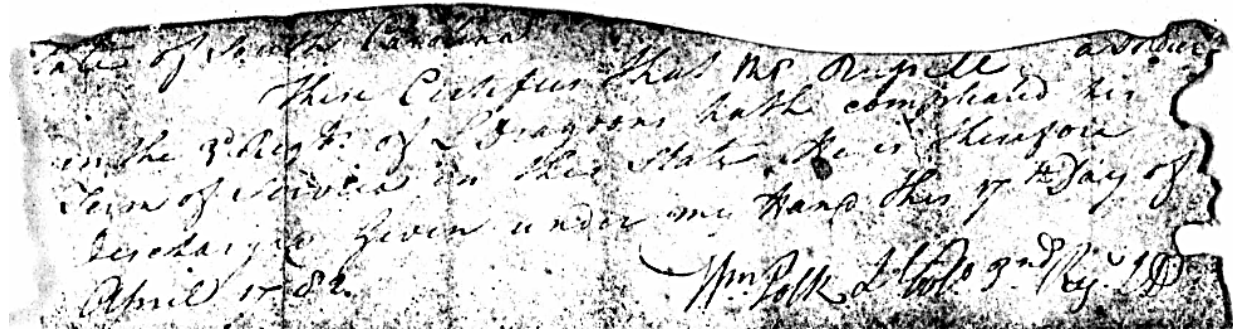 State of South Carolina
These Certifies that Mr Russell a Soldier
in the 3d Regt. of L Dragoons hath compleated his
Term of Service in this State He is therefore
discharged Given under my Hand this 17th Day of
April 1782.
Wm Polk Lt Colo. 3nd Regt. LD